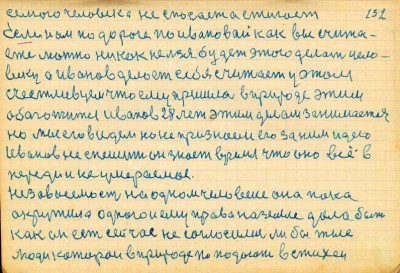 самого человека не спосается стилает 152
Если нам по дороге по ивановай как вы счита-
ете матно никак нелзя будет этого делат чело-
веку а иванов делает себя считает у этом
счестливцем что ему пришла в природе этим
обагатится иванов 28 лет этим делам занимается
но мы его видем но не признаем его за ним идею
Иванов не спешит он знает время что оно всё в
переди и не умераемае.
независемост на одном человеке она пака
окружила одного и ему права на земле дала быт
как он ест сейчас не согласилис ли бы тие
люди каторои в природе по подают в стихеи